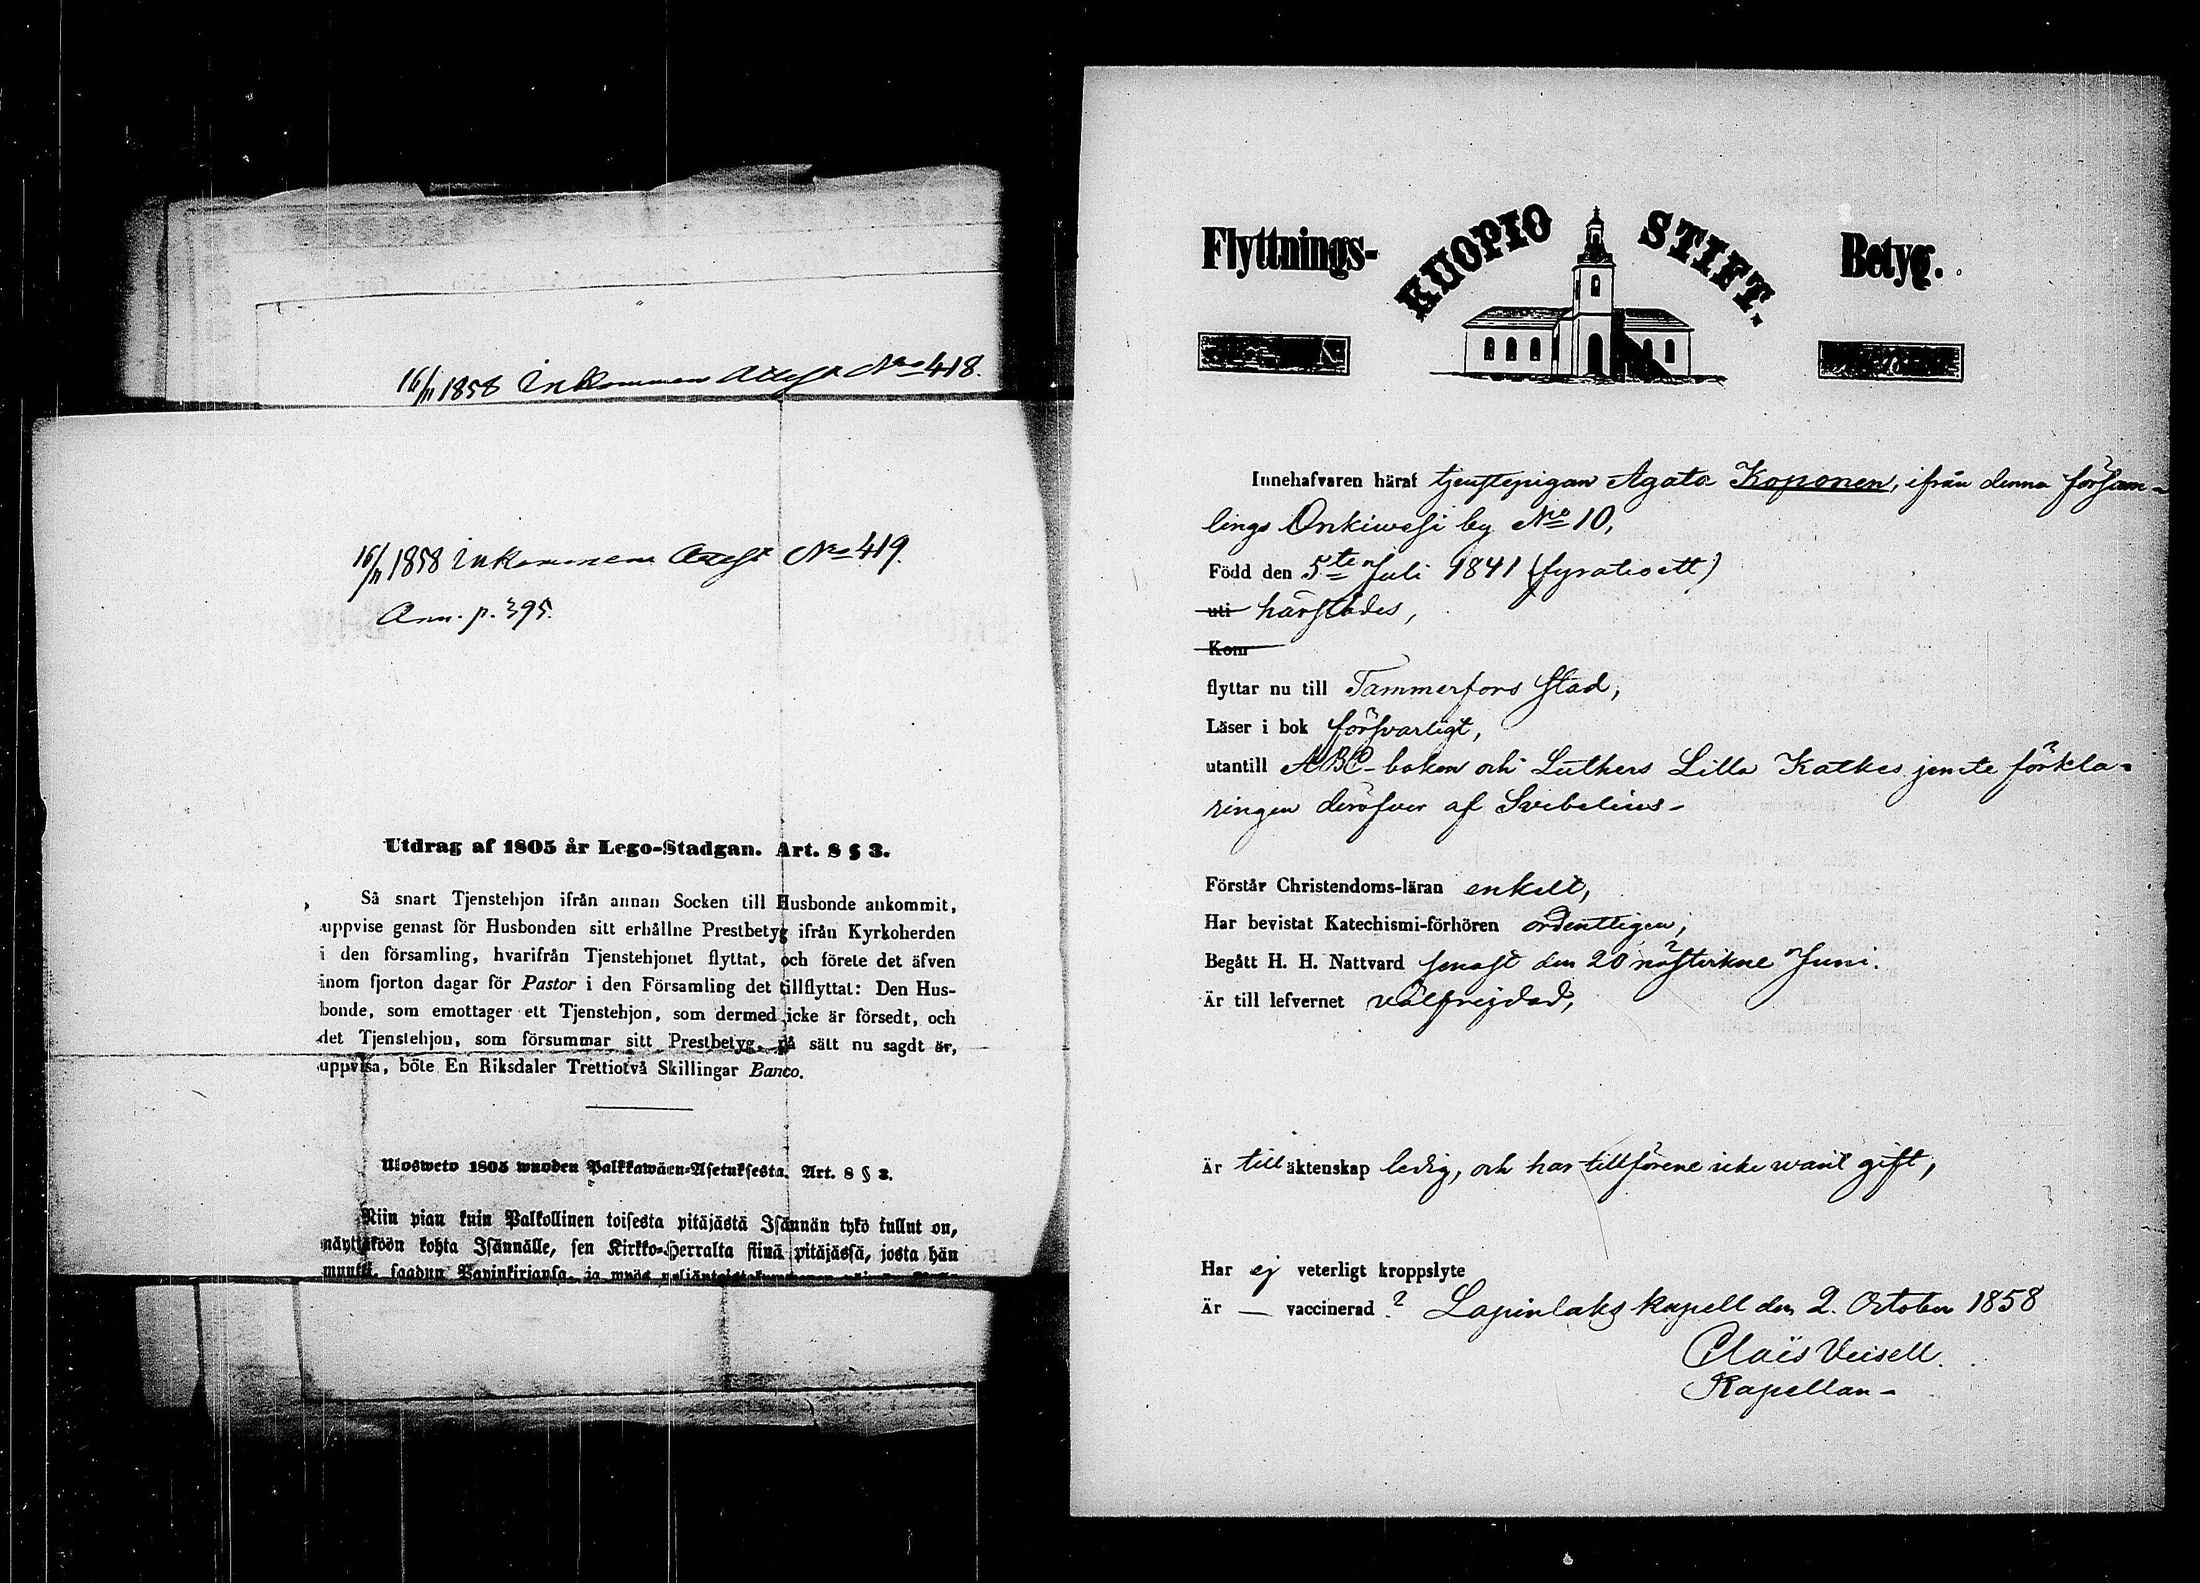 16/11 1858 Inkommen Attest No 418.
16/11 1858 Inkommen Attest No 419.
Ann. p. 395.
Utdrag af 1805 år Lego-Stadgan. Art. 8 § 3.
Så snart Tjenstehjon ifrån annan Socken till Husbonde ankommit,
uppvise genast för Husbonden sitt erhållne Prestbetyg ifrån Kyrkoherden
i den församling, hvarifrån Tjenstehjonet flyttat, och förete det äfven
inom fjorton dagar för Pastor i den Församling det tillflyttat: Den Hus-
bonde, som emottager ett Tjenstehjon, som dermed icke är försedt, och
det Tjenstehjon, som försummar sitt Prestbetyg, på sätt nu sagdt är,
uppvisa, böte En Riksdaler Trettiotvå Skillingar Banco.
Ulosweto 1805 wuoden Palkkawäen-Asetuksesta. Art. 8 § 3.
Niin pian kuin Palkollinen toisesta pitäjästä Isännän tykö tullut on,
näyttäköön kohta Isännälle, sen Kirkko-Herralta siinä pitäjässä, josta hän
muutti, saadun Papinkirjansa, ja myös
Flyttnings- KUOPIO STIFT. Betyg.
Innehafvaren häraf tjenstepigan Agata Koponen, ifrån denna försam-
lings Onkiwesi by No 10,
Född den 5te Juli 1841 (fyratioett)
uti härstädes,
Kom
flyttar nu till Tammerfors stad,
Läser i bok försvarligt,
utantill ABC-boken och Luthers Lilla Katkes jemte förkla-
ringen deröfver af Svebelius-
Förstår Christendoms-läran enkelt,
Har bevistat Katechismi-förhören ordentligen,
Begått H. H. Nattvard senast den 20 nästvikne Juni.
Är till lefvernet välfrejdad,
Är till äktenskap ledig, och har tillförene icke warit gift,
Har ej veterligt kroppslyte
Är — vaccinerad? Lapinlaks kapell den 2. October 1858
Claës Veisell.
Kapellan-